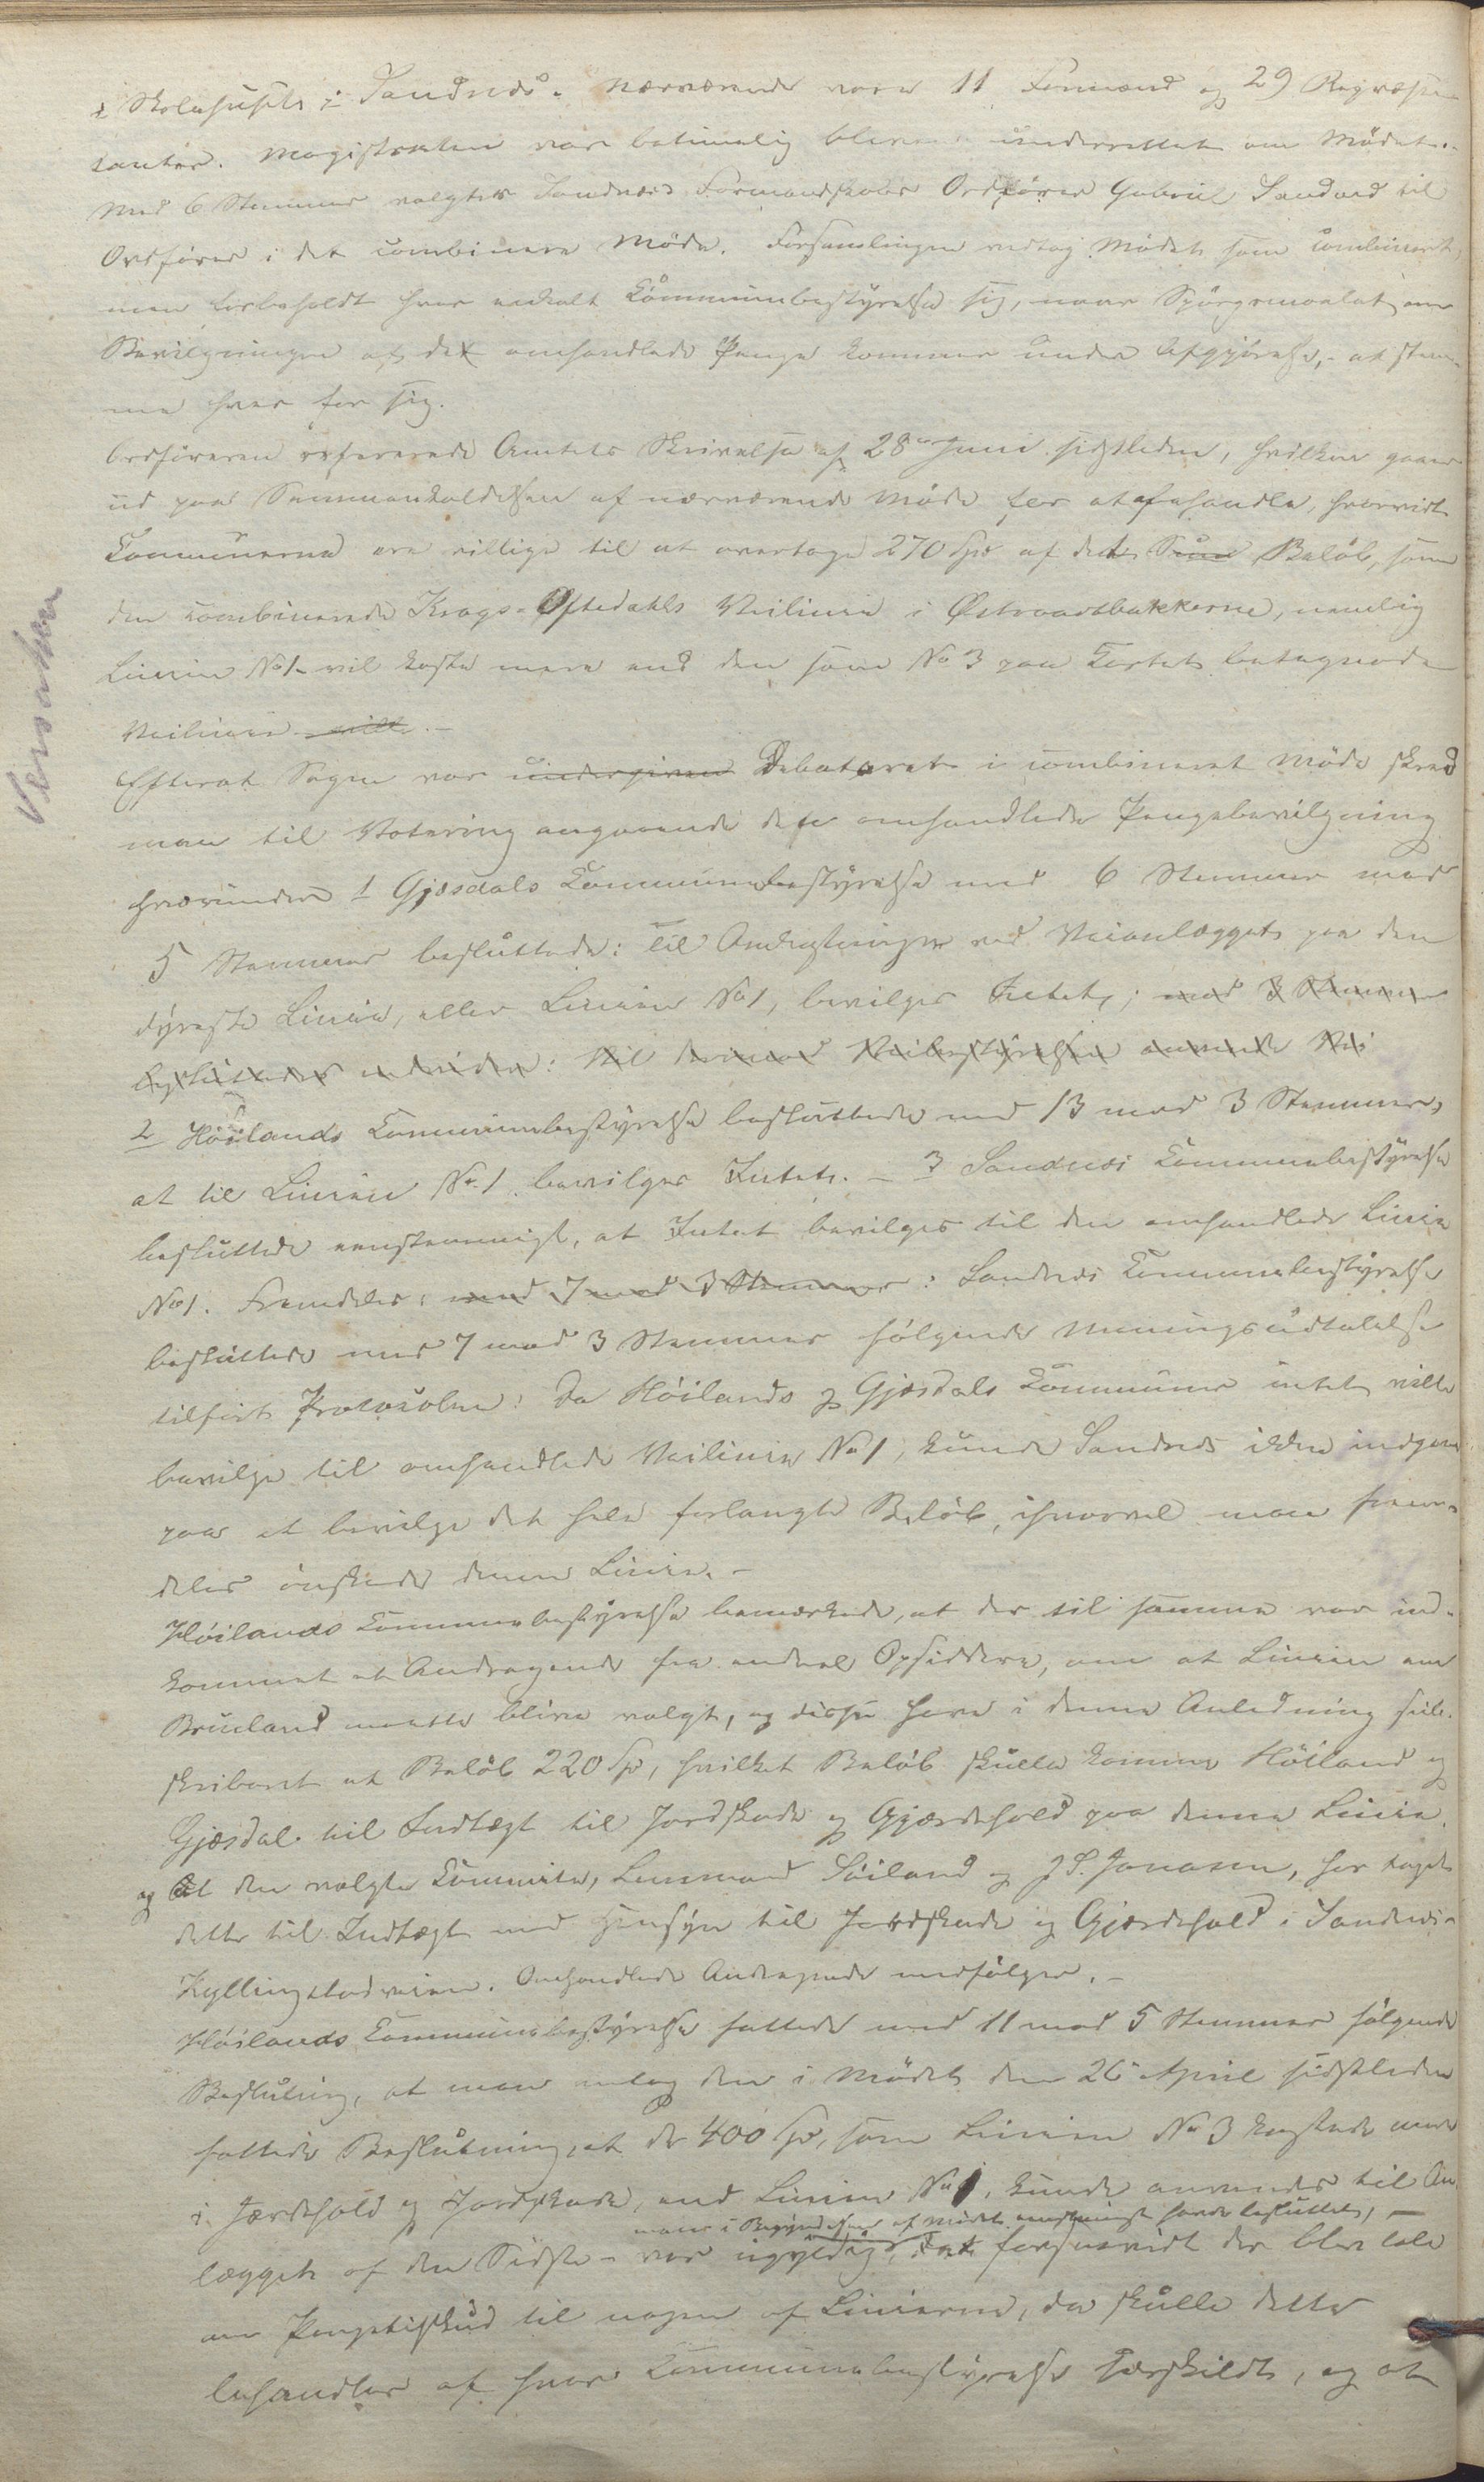 i Skolehuset i Sandnæs. Nærværende vare 11 Formænd og 29 Repræsen-
tanter. Magistraten var betimelig bleven underrettet om Mødet.-
Med 6 Stemmer valgtes Sandnæs Formandskabs Ordfører Gabriel Sandved til
Ordfører i det combinere Møde. Forsamlingen vedtog Mødet som combineret,
men forbeholdt hver enkelt Communebestyrelse sig, naar Spørgsmaalet om
Bevilgningen af det omhandlede Penge kommer under Afgjørelse, - at stem-
me hver for sig.
Ordføreren refererede Amtets Skrivelse af 28de Juni sidstleden, hvilken gaar
ud paa Sammenkaldelsen af nærværende Møde for at afhandle, hvorvidt
Communerne ere villige til at overtage 270 Spd af det Sum Beløb, som
den combinerede Krags-Oftedahls Veilinie i Østraadtbakkerne, nemlig
Linien No 1 vil koste mere end den som No 3 paa Kartet betegnede
Veilinie vill.-
Efterat Sagen var undergiven Debateret i combineret Møde skred
man til Votering angaaende den omhandlede Pengebevilgning
hvorunder 1 Gjæsdals Communebestyrelse med 6 Stemmer mod
5 Stemmer besluttede: til Omkostninger ved Veianlægget paa den
dyreste Linie, eller Linien No 1, bevilges Intet; med 3 Stemmer
besluttedes endvidere: til Veibestyrelsen
2 Höilands Communebestyrelse besluttede med 13 mod 3 Stemmer,
at til Linien No 1 bevilges Intet. - 3 Sandnæs Communebestyrelse
besluttede eenstemmigt, at Intet bevilges til den omhandlede Linie
No 1. Fremdeles: med 7 mod 3 Stemmer: Sandnæs Communebestyrelse
besluttede med 7 mod 3 Stemmer følgende Meningsudtalelse
tilført Protocolen: Da Höilands og Gjæsdals Communer intet ville
bevilge til omhandlede Veilinie No 1, kunde Sandnæs ikke indgaa
paa at bevilge det hele forlangte Beløb, ihvorvel man frem-
deles ønskede denne Linie.-
Höilands Communebestyrelse bemærkede, at der til samme var ind-
kommet et Andragende fra endeel Opsiddere, om at Linien om
Brueland maatte blive valgt, og disse have i denne Anledning sub-
skriberet et Beløb 220 Spd, hvilket Beløb skulle komme Höiland og
Gjæsdal til Indtægt til Jordskade og Gjærdehold paa denne Linie.
og at den valgte Committe, Lensmand Söiland og J S. Jonasen, har taget
dette til Indtægt med Hensyn til Jordskade og Gjærdehold i Sandnæs-
Kyllingstadveien. Omhandlede Andragende medfølger.-
Höilands Communebestyrelse fattede med 11 mod 5 Stemmer følgende
Beslutning, at man antog den i Mødet den 26de April sidstleden
fattede Beslutning, at de 400 Spd, som Linien No 3 kostede mere
i Jærdehold og Jordskade, end Linien No 1, kunde anvendes til An-
man i Begyndelsen af Mødet eenstemmigt havde besluttet, -
lægget af den Sidste - var ugyldig, at forsaavidt der blev tale
om Pengetilskud til nogen af Linierne, da skulle dette
behandles af hver Communebestyrelse særskildt, og at